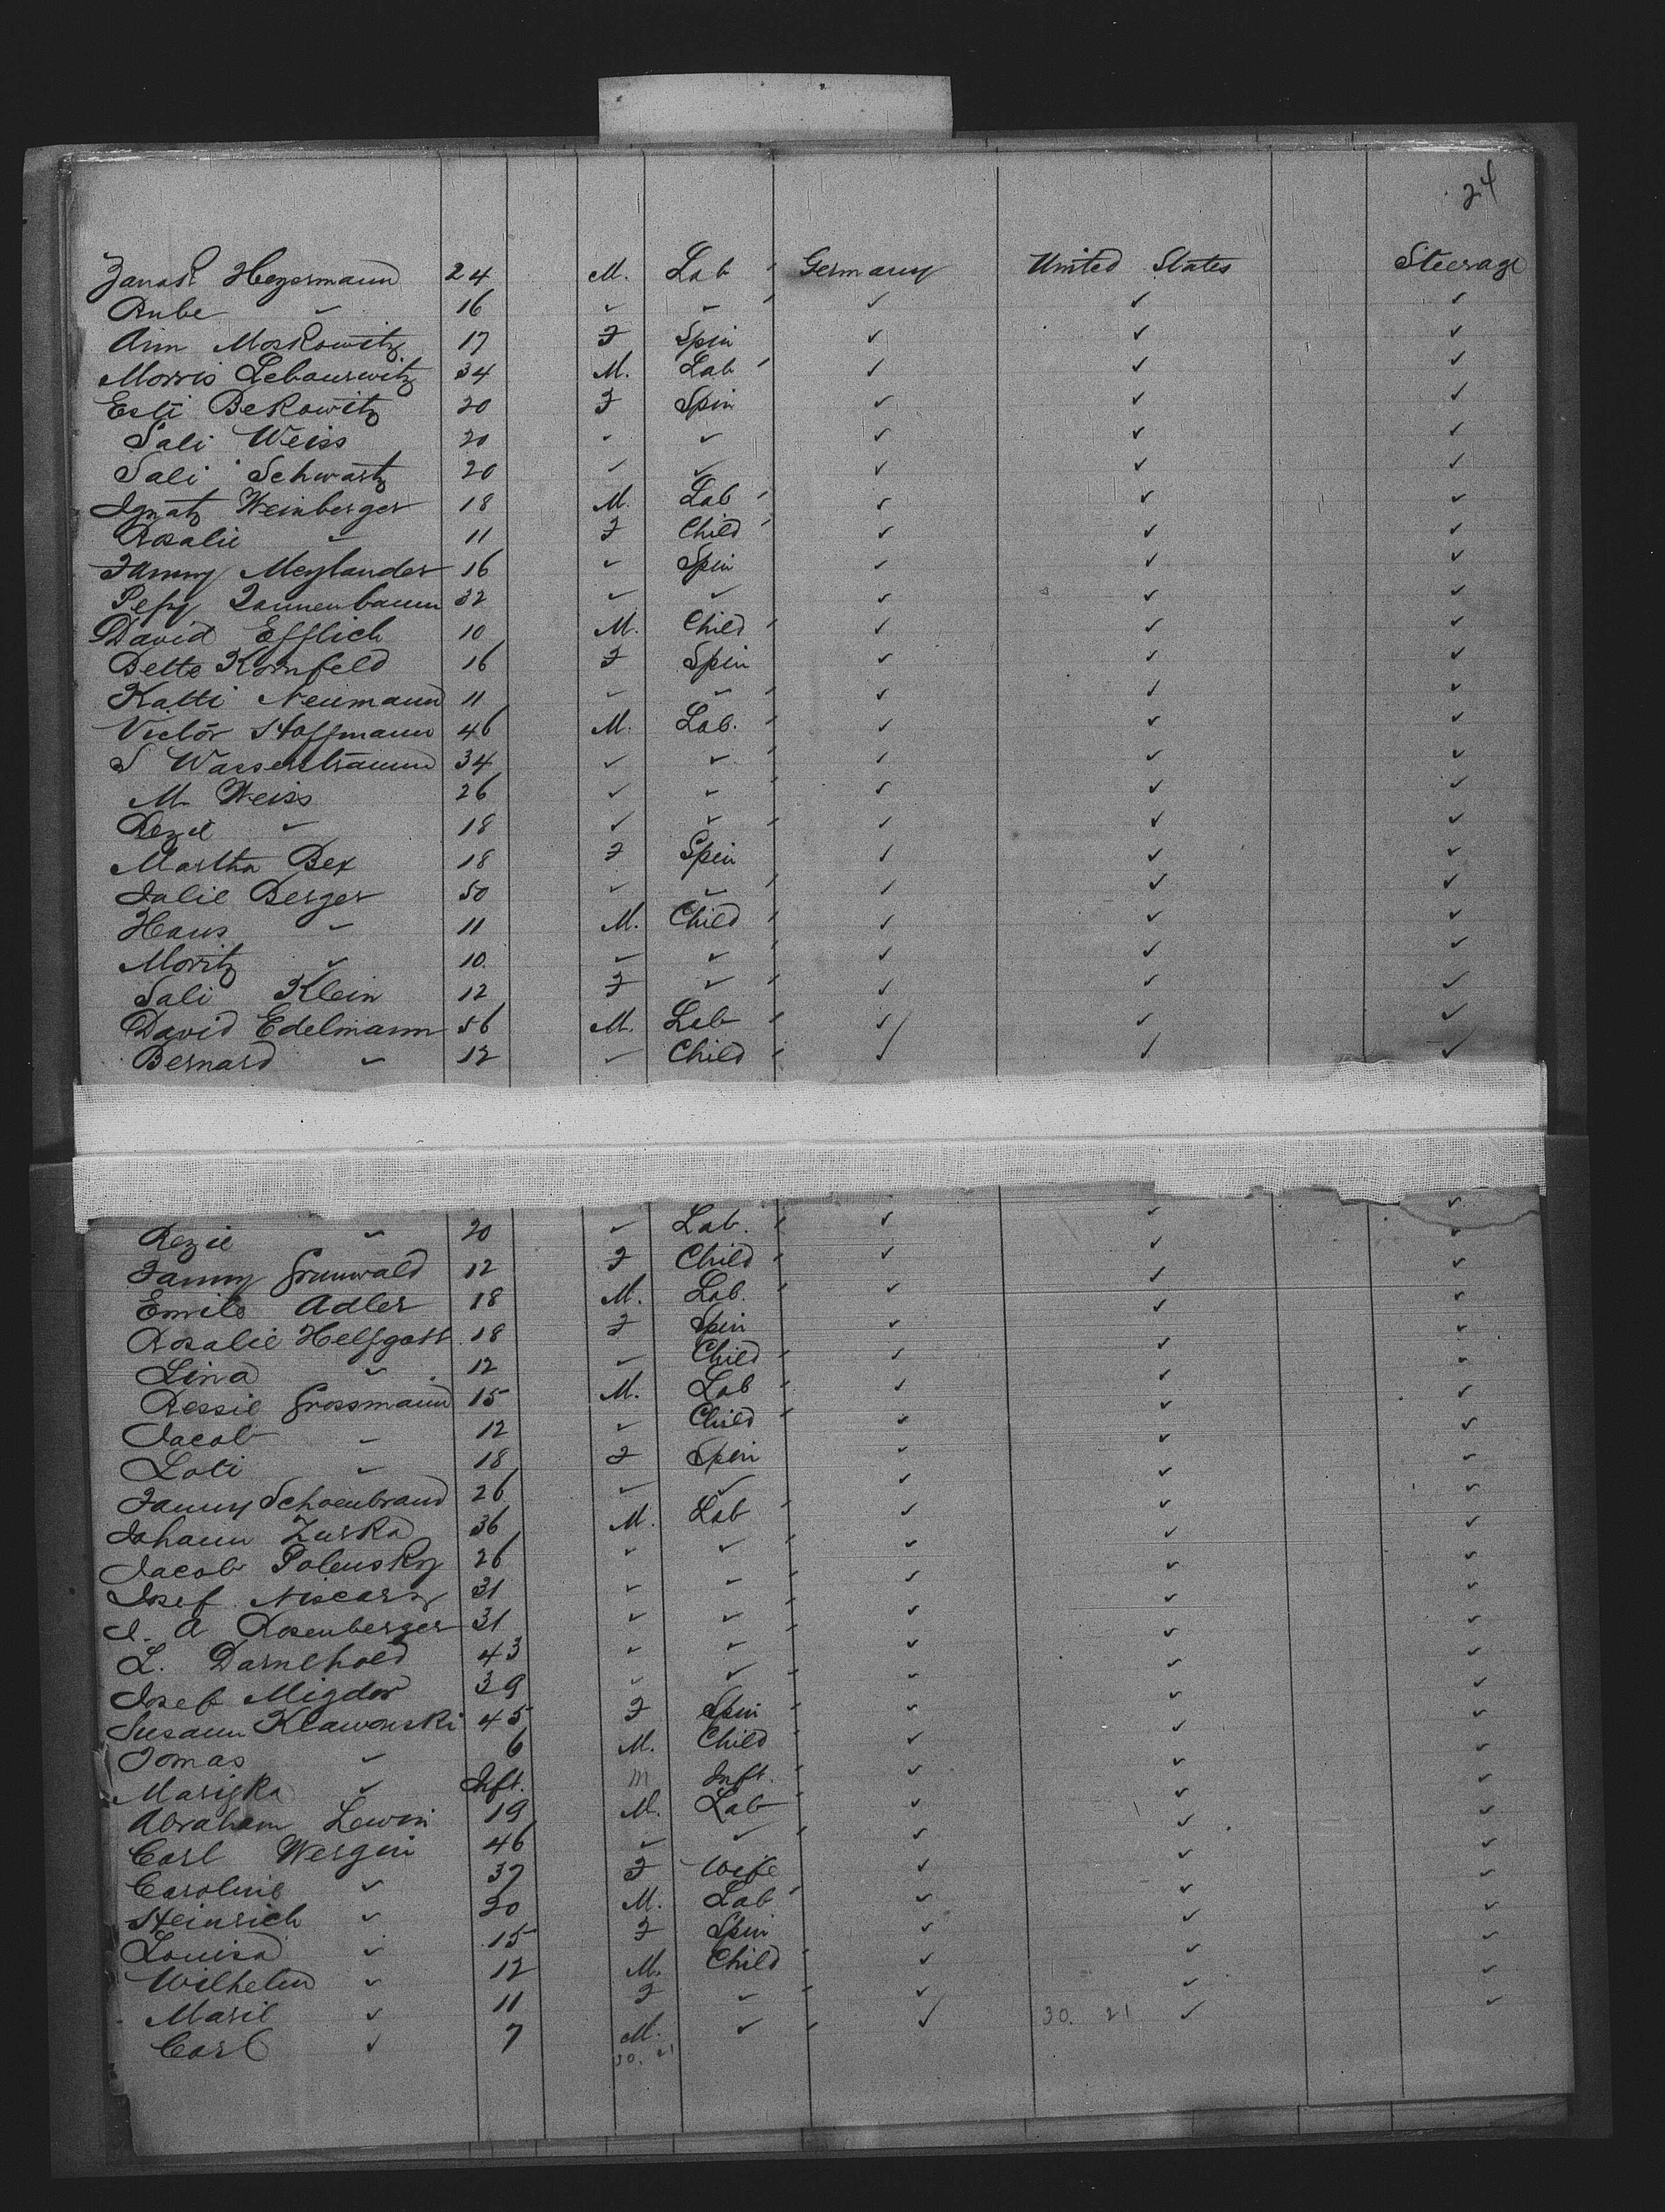 24
Janos Hegermann 24 M. Lab Germany United States Steerage
Rube " 16 " " " " "
Ann Moskowitz 17 F Spin " " "
Morris Lebourwitz 34 M. Lab " " "
Esti Bekowitz 20 F Spin " " "
Sali Weiss 20 " " " " "
Sali Schwartz 20 " " " " "
Ignatz Weinberger 18 M. Lab " " "
Rosalie " 11 F Child " " "
Fanny Meylander 16 " Spin " " "
Pepy Tannenbaum 32 " " " " "
David Efflich 10 M. Child " " "
Bette Kornfeld 16 F Spin " " "
Katti Neumann 11 " " " " "
Victor Hoffmann 46 M. Lab. " " "
S Wasserstraumd 34 " " " " "
M. Weiss 26 " " " " "
Rezie " 18 " " " " "
Martha Bex 18 F Spin " " "
Julie Berger 50 " " " " "
Hans " 11 M. Child " " "
Moritz " 10. " " " " "
Sali Klein 12 F " " " "
David Edelmann 56 M. Lab " " "
Bernard " 12 " Child " " "
Rezie " 20 " Lab. " " "
Fanny Grunwald 12 F Child " " "
Emile Adler 18 M. Lab. " " "
Rosalie Helfgott 18 F Spin " " "
Lina " 12 " Child " " "
Ressie Grossmann 15 M. Lab " " "
Jacob " 12 " Child " " "
Loti " 18 F Spin " " "
Fanny Schoenbrand 26 " " " " "
Johann Zurka 36 M. Lab " " "
Jacob Polensky 26 " " " " "
Josef 31 " " " " "
J. A Rosenberger 31 " " " " "
L. Darnehold 43 " " " " "
Josef Migdor 39 " " " " "
Susann Klawonski 45 F Spin " " "
Tomas " 6 M. Child " " "
Mariska " Inft. m Inft. " " "
Abraham Lewin 19 M. Lab " " "
Carl Wergin 46 " " " " "
Caroline " 37 F Wife " " "
Heinrich " 20 M. Lab " " "
Louisa " 15 F Spin " " "
Wilhelm " 12 M. Child " " "
Marie " 11 F " " " "
Carl " 7 M. " " 30. 21 " "
30. 21